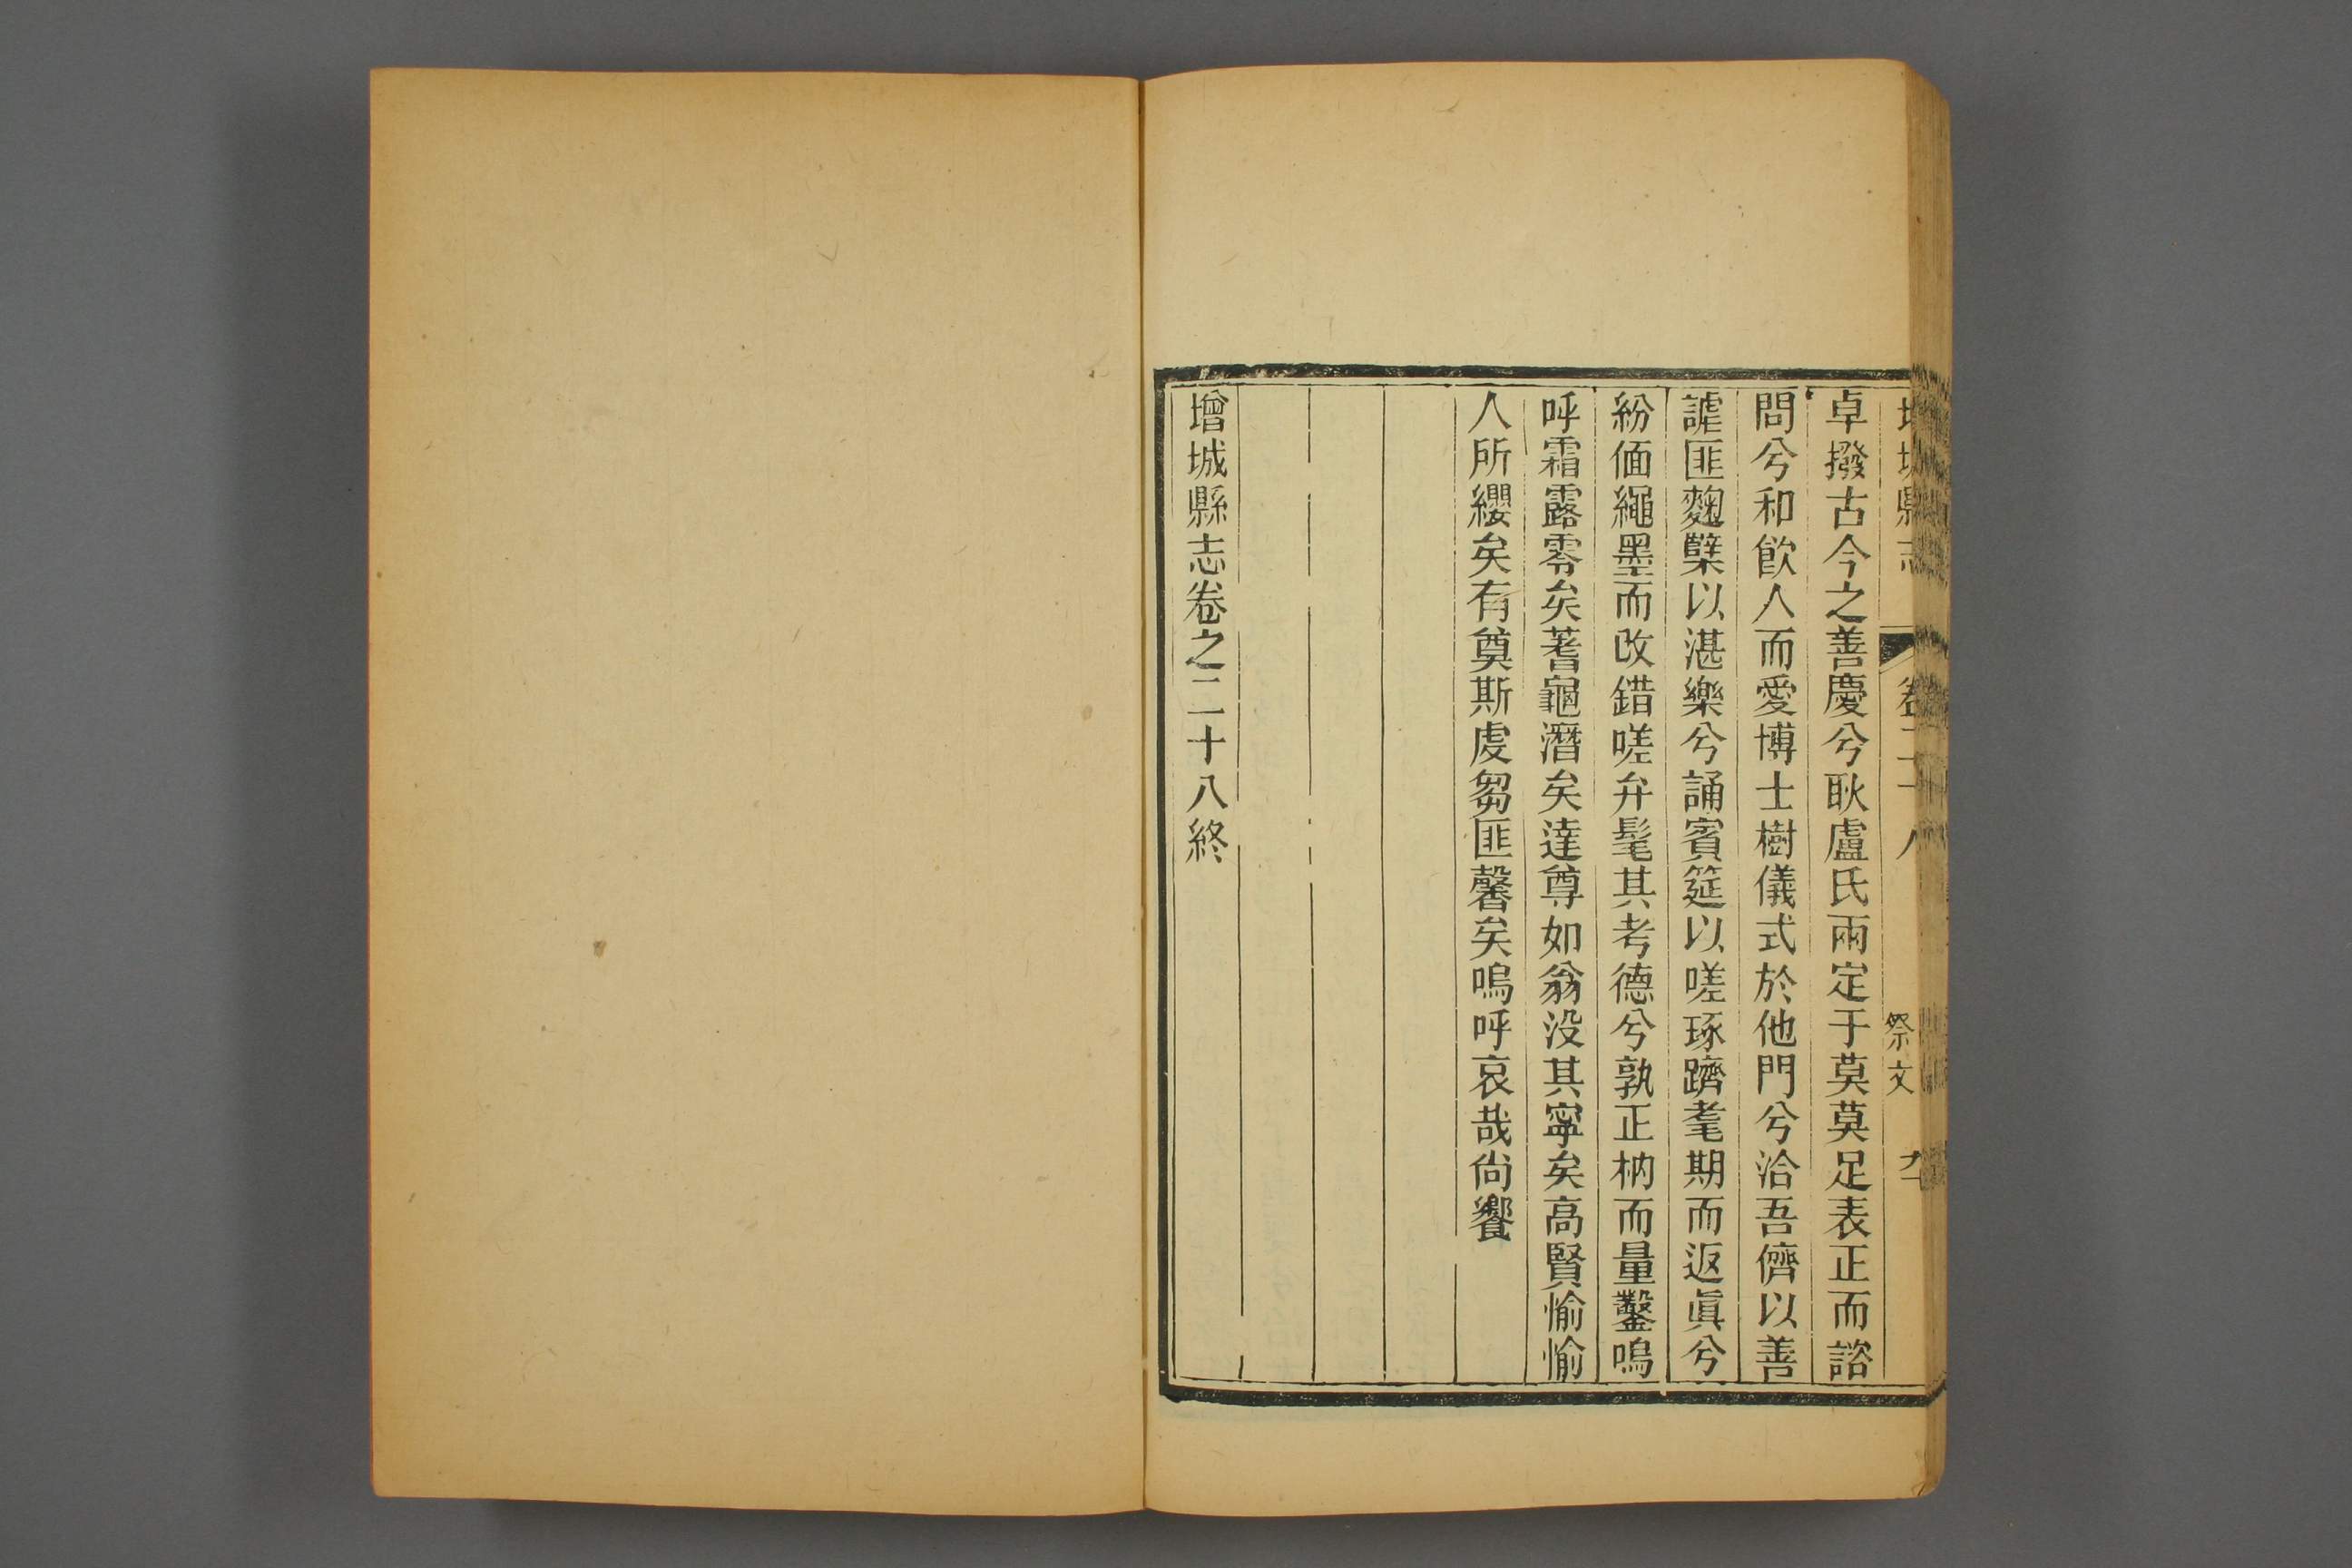 增城縣志 卷二十八 祭文
卓撥古今之善慶兮耿盧氏兩定于莫莫足表正而諮
問兮和飮人而愛博士樹儀式於他門兮洽吾儕以善
謔匪麴糱以湛樂兮誦賓筵以嗟琢躋耄期而返眞兮
紛偭繩墨而改錯嗟弁髦其考德兮孰正枘而量鑿嗚
呼霜露零矣蓍龜潛矣達尊如翁没其寧矣高賢愉愉
人所纓矣有奠斯虔芻匪馨矣嗚呼哀哉尙饗
增城縣志卷之二十八終